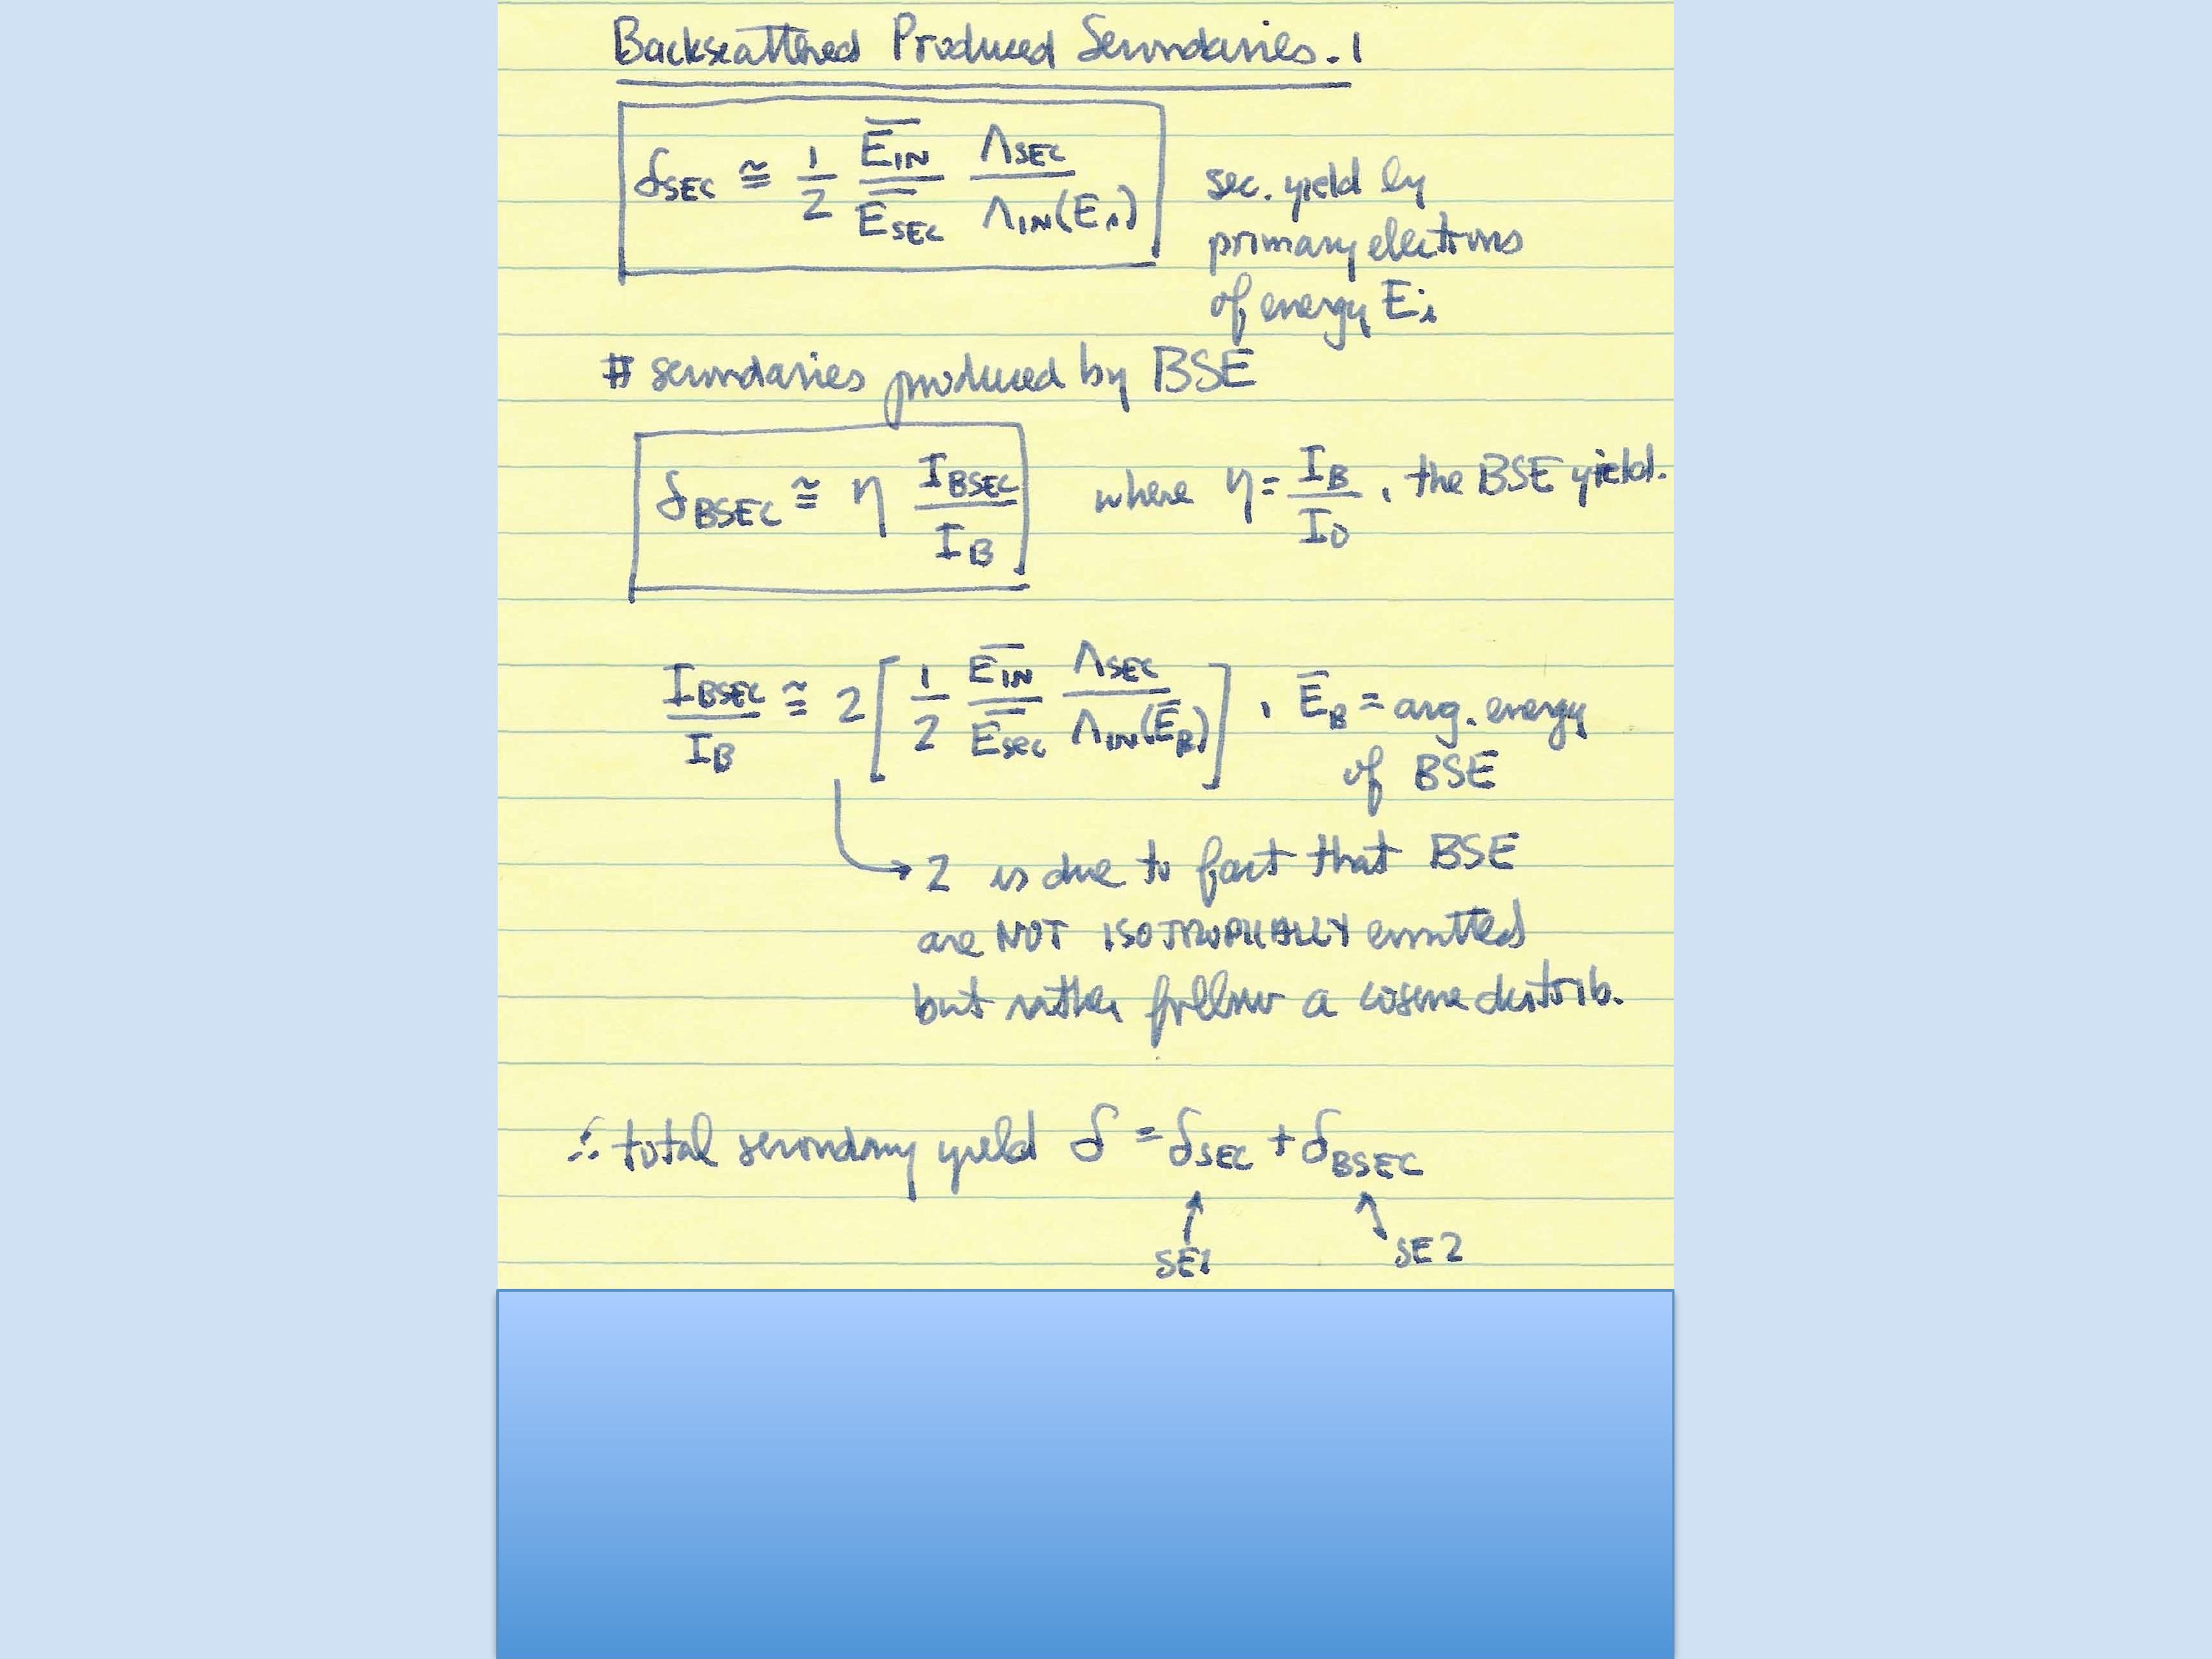 Backscattered Produced Secondaries.1
δSEC ≅ 1/2 E̅IN/E̅SEC ΛSEC/ΛIN(Ei)
sec. yield by
primary electrons
of energy Ei
# secondaries produced by BSE
δBSEC ≅ η IBSEC/IB where η = IB/I0, the BSE yield.
IBSEC/IB ≅ 2[1/2 E̅IN/E̅sec ΛSEC/ΛIN(E̅B)], E̅B = avg. energy
of BSE
→ 2 is due to fact that BSE
are NOT ISOTROPICALLY emitted
but rather follow a cosine distrib.
∴ total secondary yield δ = δSEC + δBSEC
SE1 SE2